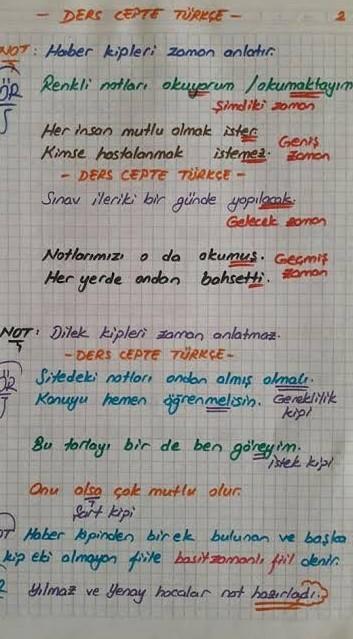 - DERS CEPTE TÜRKÇE - 2
NOT: Haber kipleri zaman anlatır.
ÖR Renkli notları okuyorum / okumaktayım
Şimdiki zaman
Her insan mutlu olmak ister. Geniş
Kimse hastalanmak istemez. zaman
- DERS CEPTE TÜRKÇE -
Sınav ileriki bir günde yapılacak.
Gelecek zaman
Notlarımızı o da okumuş. Geçmiş
Her yerde ondan bahsetti. zaman
NOT: Dilek kipleri zaman anlatmaz.
- DERS CEPTE TÜRKÇE -
ÖR Sitedeki notları ondan almış olmalı.
Konuyu hemen öğrenmelisin. Gereklilik
kipi
Bu tarlayı bir de ben göreyim.
istek kipi
Onu alsa çok mutlu olur.
Şart kipi
OT Haber kipinden bir ek bulunan ve başka
kip eki almayan fiile basit zamanlı fiil denir.
Yılmaz ve Yenay hocalar not hazırladı.